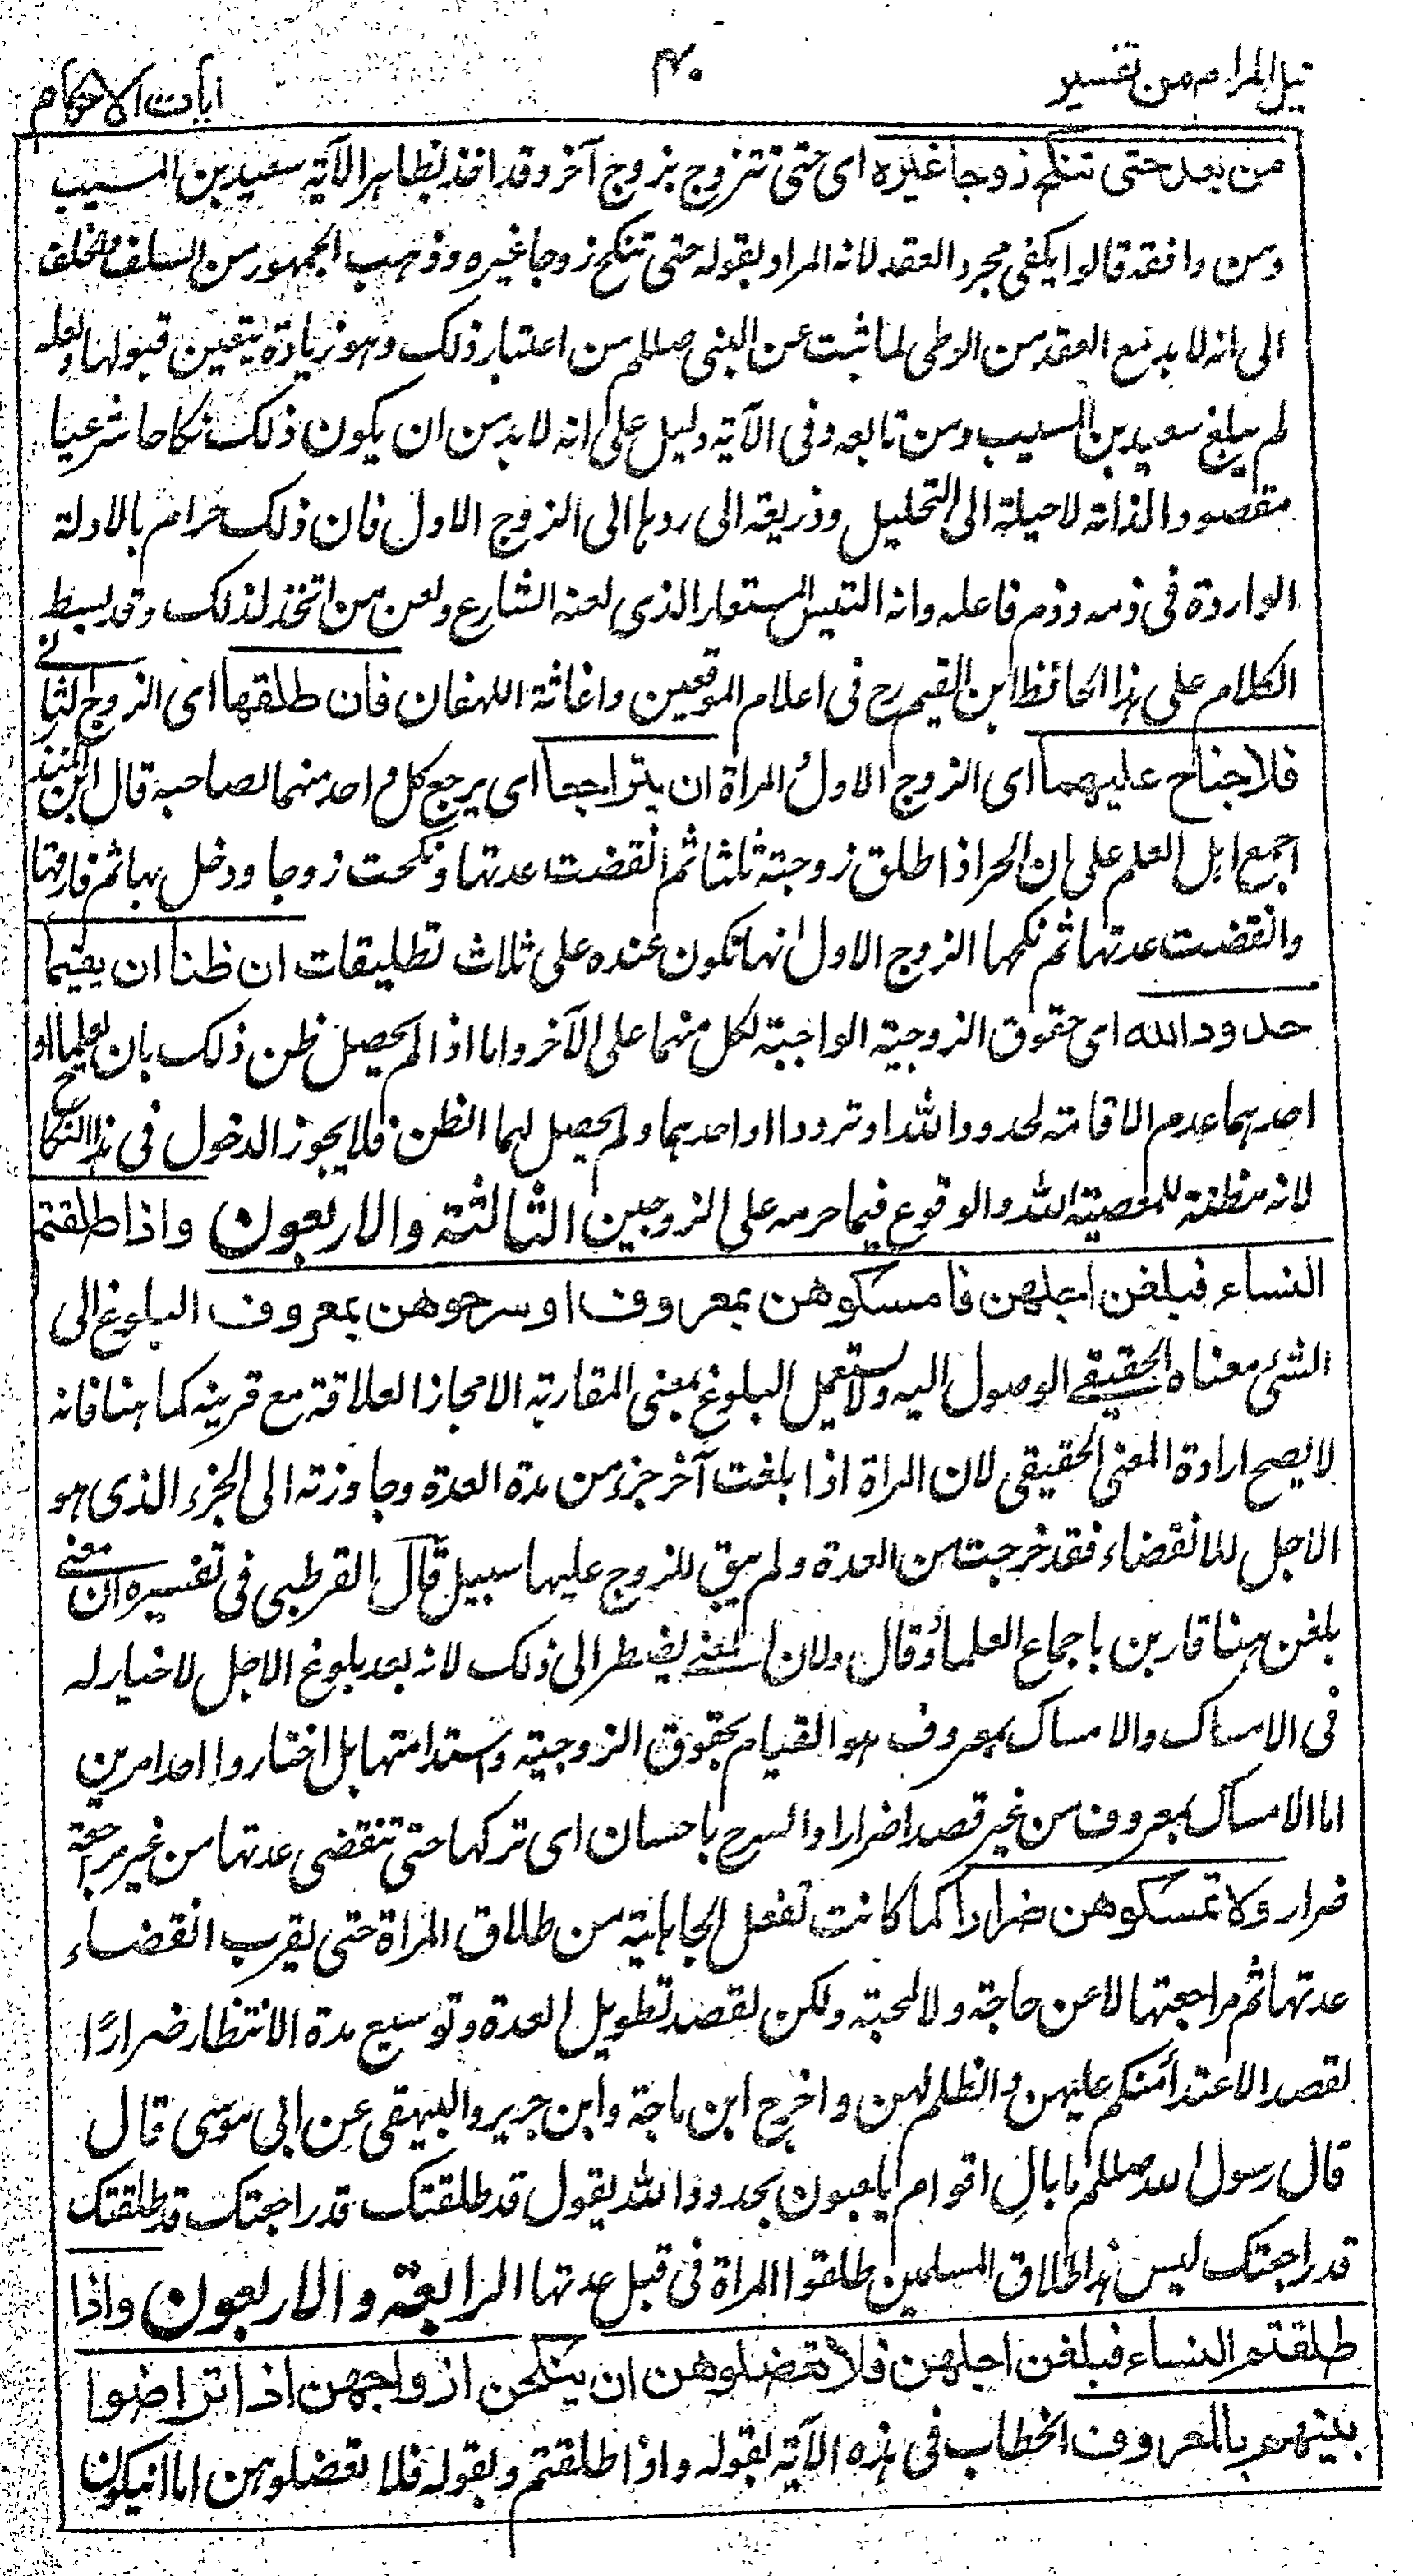 نيل المرام من تفسير
۴۰
ايات الاحكام
من بعد حتى تنكح زوجا غيره اى حتى تتزوج بزوج آخر وقد اخذ بظاهر الآية سعيد بن المسيب
ومن وافقه قالوا يكفى مجرد العقد لانه المراد بقوله حتى تنكح زوجا غيره وذهب الجمهور من السلف والخلف
الى انه لا بد مع العقد من الوطى لما ثبت عن النبى صللم من اعتبار ذلك وهو زيادة يتعين قبولها ولعله
لم يبلغ سعيد بن المسيب ومن تابعه وفى الآية دليل على انه لا بد من ان يكون ذلك نكاحا شرعيا
مقصودا لذاته لا حيلة الى التحليل وذريعة الى ردها الى الزوج الاول فان ذلك حرام بالادلة
الواردة فى ذمه وذم فاعله وانه التيس المستعار الذى لعنه الشارع ولعن من اتخذ لذلك وقد بسط
الكلام على هذا الحافظ ابن القيم رح فى اعلام الموقعين واغاثة اللهفان فان طلقها اى الزوج الثانى
فلا جناح عليهما اى الزوج الاول والمرأة ان يتراجعا اى يرجع كل واحد منهما لصاحبه قال ابن المنذر
اجمع اهل العلم على ان الحر اذا طلق زوجته ثلثا ثم انقضت عدتها ونكحت زوجا ودخل بها ثم فارقها
وانقضت عدتها ثم نكحها الزوج الاول انها تكون عنده على ثلاث تطليقات ان ظنا ان يقيما
حدود الله اى حقوق الزوجية الواجبة لكل منهما على الآخر واما اذا لم يحصل ظن ذلك بان يعلما او
احدهما عدم الاقامة لحدود الله او ترددا او احدهما ولم يحصل لهما الظن فلا يجوز الدخول فى هذا النكاح
لانه مظنة للمعصية لله والوقوع فيما حرمه على الزوجين الثالثة والاربعون واذا طلقتم
النساء فبلغن اجلهن فامسكوهن بمعروف او سرحوهن بمعروف البلوغ الى
الشئ معناه الحقيقي الوصول اليه ولا يستعمل البلوغ بمعنى المقاربة الا مجازا لعلاقة مع قرينه كما هنا فانه
لا يصح ارادة المعنى الحقيقى لان المرأة اذا بلغت آخر جزء من مدة العدة وجاوزته الى الجزء الذى هو
الاجل للانقضاء فقد خرجت من العدة ولم يبق للزوج عليها سبيل قال القرطبى فى تفسيره ان معنى
بلغن هنا قاربن باجماع العلماء وقال ولان المعنى يضطر الى ذلك لانه بعد بلوغ الاجل لا خيار له
فى الامساك والامساك بمعروف هو القيام بحقوق الزوجية واستدامتها بل اختاروا احد امرين
اما الامساك بمعروف من غير قصد اضرار او التسرح باحسان اى تركها حتى تنقضى عدتها من غير مراجعة
ضرار ولا تمسكوهن ضرارا كما كانت تفعل الجاهلية من طلاق المرأة حتى يقرب انقضاء
عدتها ثم مراجعتها لا عن حاجة ولا لمحبة ولكن لقصد تطويل العدة وتوسيع مدة الانتظار ضرارًا
لقصد الاعتداء منكم عليهن والظلم لهن واخرج ابن ماجة وابن جرير والبيهقى عن ابى موسى قال
قال رسول الله صللم ما بالِ اقوام يلعبون بحدود الله يقول قد طلقتك قد راجعتك قد طلقتك
قد راجعتك ليس هذا طلاق المسلمين طلقوا المرأة فى قبل عدتها الرابعة والاربعون واذا
طلقتم النساء فبلغن اجلهن فلا تعضلوهن ان ينكحن ازواجهن اذا تراضوا
بينهم بالمعروف الخطاب فى هذه الآية بقوله واذا طلقتم وبقوله فلا تعضلوهن اما ان يكون